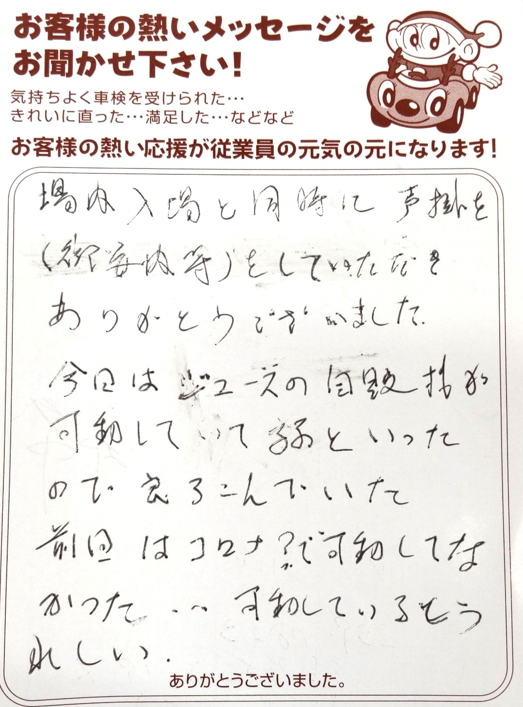 お客様の熱いメッセージを
お聞かせ下さい!
気持ちよく車検を受けられた…
きれいに直った…満足した…などなど
お客様の熱い応援が従業員の元気の元になります!
場内入場と同時に声掛を
(御案内等)をしていただき
ありがとうございました
今日はジュースの自販機が
可動していて子供といった
ので良ろこんでいた
前回はコロナ?で可動してな
かった... 可動しているとう
れしい.
ありがとうございました。